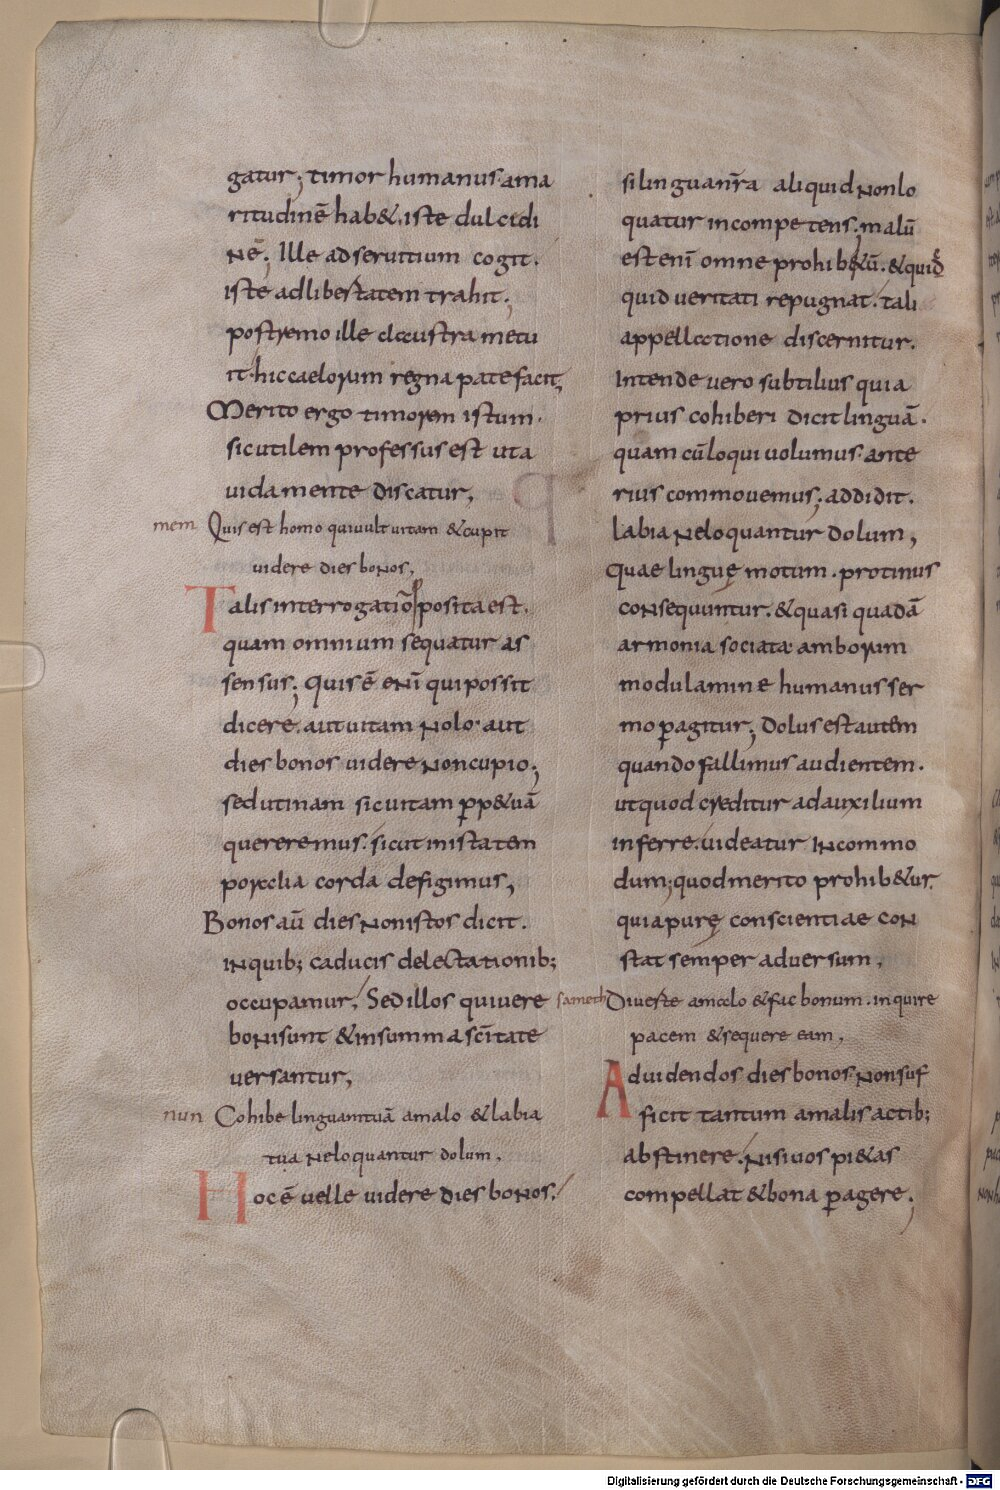 gatur; timor humanus ama
ritudinē hab&, iste dulcidi
nē; Ille ad seruitium cogit.
iste ad libertatem trahit;
postremo ille claustra metu
it. hic caelorum regna patefacit,
Merito ergo timorem istum.
sic utilem professus est ut a
uida mente discatur,
mem Quis est homo qui uult uitam & cupit
uidere dies bonos,
Talis interrogatio posita est.
quam omnium sequatur as
sensus; Quis ē enī qui possit
dicere. aut uitam nolo. aut
dies bonos uidere non cupio;
sed utinam sic uitam ꝑp&uā
quereremus. sicut in ista tem
poralia corda defigimus,
Bonos aū dies non istos dicit.
in quib; caducis delectationib;
occupamur, Sed illos qui uere
boni sunt & in summa scītate
uersantur,
nun Cohibe linguam tuā a malo & labia
tua ne loquantur dolum,
Hoc ē uelle uidere dies bonos.
si lingua nr̄a aliquid non lo
quatur incompetens; malū
est enī omne prohib&ū. & quid
quid ueritati repugnat. tali
appellatione discernitur.
Intende uero subtilius quia
prius cohiberi dicit linguā.
quam cū loqui uolumus. ante
rius commouemus; addidit.
labia ne loquantur dolum,
Quae linguę motum. protinus
consequuntur. & quasi quadā
armonia sociata amborum
modulamine humanus ser
mo ꝑagitur; Dolus est autem
quando fallimus audientem.
ut quod creditur ad auxilium
inferre. uideatur incommo
dum; quod merito prohib&ur.
quia purę conscientiae con
stat semper aduersum,
sameth Diuerte a malo & fac bonum. inquire
pacem & sequere eam,
Ad uidendos dies bonos. non suf
ficit tantum a malis actib;
abstinere. nisi uos pi&as
compellat & bona ꝑagere;
Digitalisierung gefördert durch die Deutsche Forschungsgemeinschaft - DFG